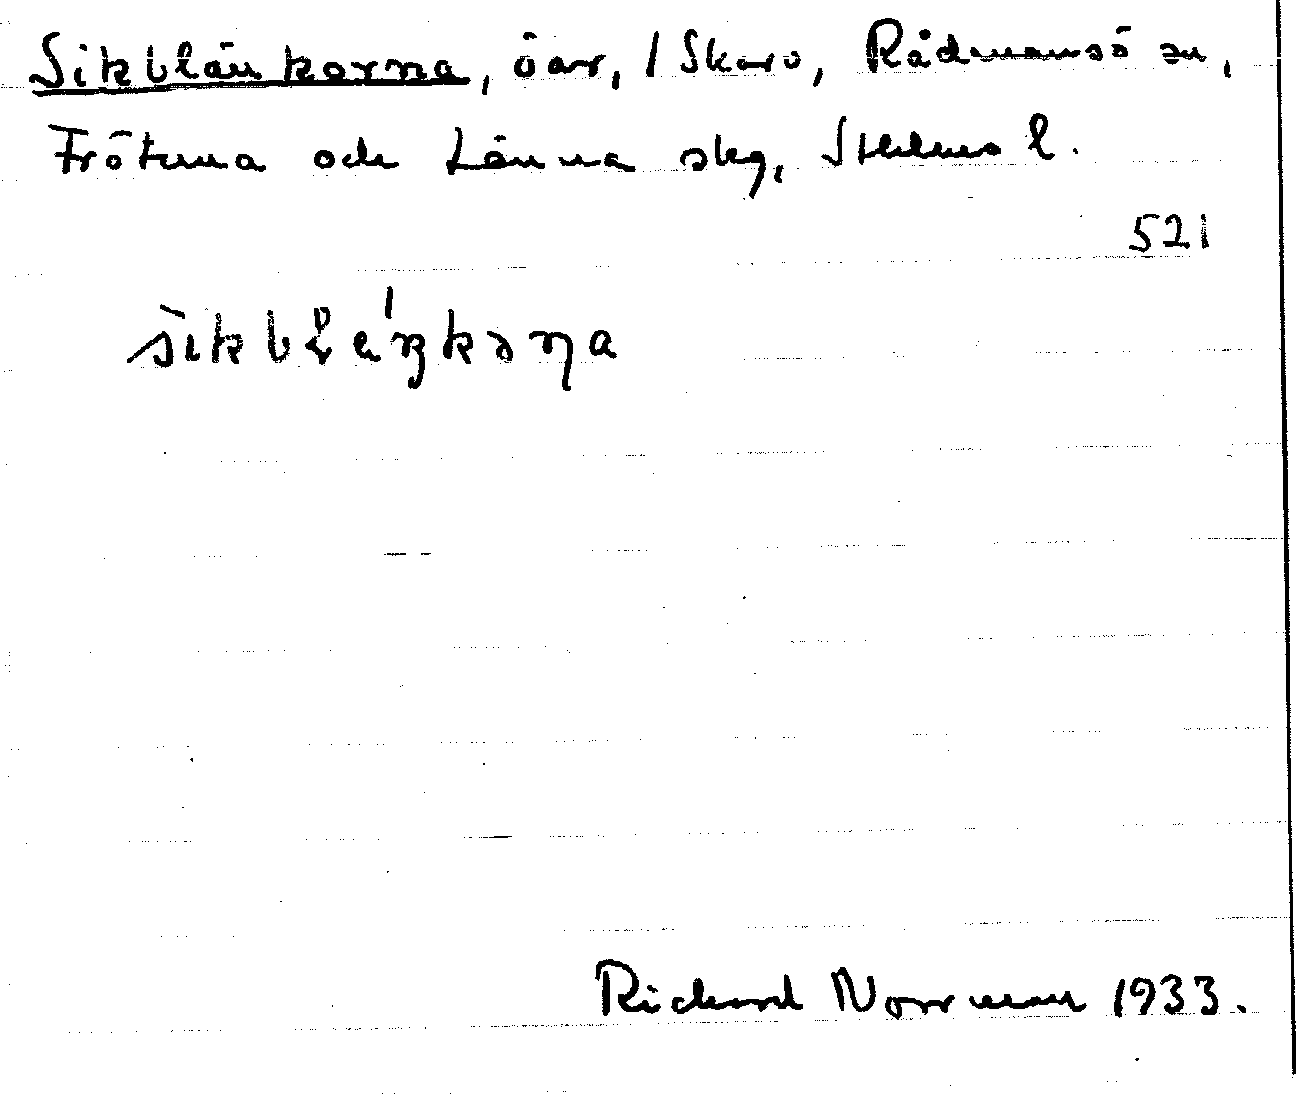 Sikblänkorna, öar, / Skarv, Rådmansö sn,
Frötuna och Länna skg, Sthlms l.
521
Richard Norrman 1933.